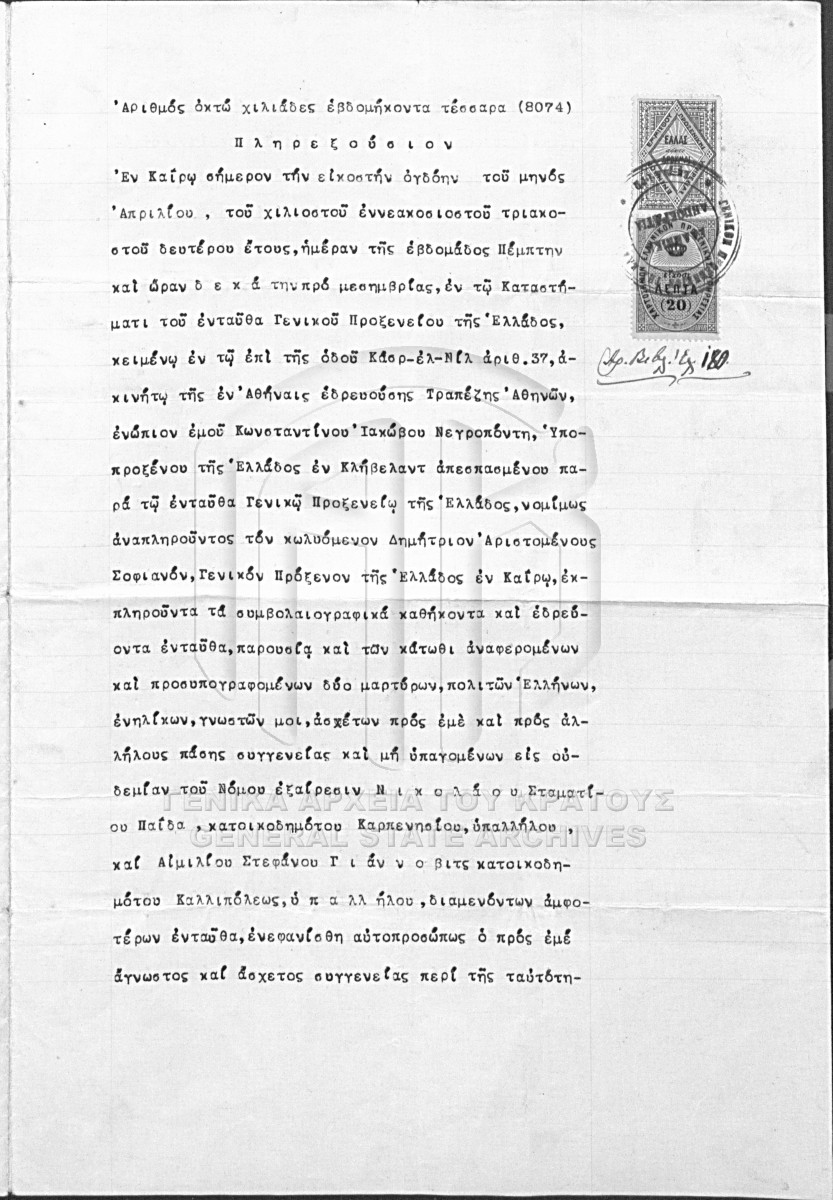 Ἀριθμός ὀκτώ χιλιάδες ἑβδομήκοντα τέσσαρα (8074)
Π λ η ρ ε ξ ο ύ σ ι ο ν
Ἐν Καΐρῳ σήμερον τήν εἰκοστήν ὀγδόην τοῦ μηνός
Ἀπριλίου, τοῦ χιλιοστοῦ ἐννεακοσιοστοῦ τριακο-
στοῦ δευτέρου ἔτους, ἡμέραν τῆς ἑβδομάδος Πέμπτην
καί ὥραν δ ε κ ά την πρό μεσημβρίας, ἐν τῷ Καταστή-
ματι τοῦ ἐνταῦθα Γενικοῦ Προξενείου τῆς Ἑλλάδος,
κειμένῳ ἐν τῷ ἐπί τῆς ὁδοῦ Κάσρ-ἐλ-Νίλ ἀριθ. 37, ἀ-
κινήτῳ τῆς ἐν Ἀθήναις ἑδρευούσης Τραπέζης Ἀθηνῶν,
ἐνώπιον ἐμοῦ Κωνσταντίνου Ἰακώβου Νεγροπόντη, Ὑπο-
προξένου τῆς Ἑλλάδος ἐν Κλήβελαντ ἀπεσπασμένου πα-
ρά τῷ ἐνταῦθα Γενικῷ Προξενείῳ τῆς Ἑλλάδος, νομίμως
ἀναπληροῦντος τόν κωλυόμενον Δημήτριον Ἀριστομένους
Σοφιανόν, Γενικόν Πρόξενον τῆς Ἑλλάδος ἐν Καΐρῳ, ἐκ-
πληροῦντα τά συμβολαιογραφικά καθήκοντα καί ἑδρεύ-
οντα ἐνταῦθα, παρουσίᾳ καί τῶν κάτωθι ἀναφερομένων
καί προσυπογραφομένων δύο μαρτύρων, πολιτῶν Ἑλλήνων,
ἐνηλίκων, γνωστῶν μοι, ἀσχέτων πρός ἐμέ καί πρός ἀλ-
λήλους πάσης συγγενείας καί μή ὑπαγομένων εἰς οὐ-
δεμίαν τοῦ Νόμου ἐξαίρεσιν Ν ι κ ο λ ά ο υ Σταματί-
ου Παΐδα, κατοικοδημότου Καρπενησίου, ὑπαλλήλου,
καί Αἰμιλίου Στεφάνου Γ ι ά ν ν ο βιτς κατοικοδη-
μότου Καλλιπόλεως, ὑ π α λλ ήλου, διαμενόντων ἀμφο-
τέρων ἐνταῦθα, ἐνεφανίσθη αὐτοπροσώπως ὁ πρός ἐμέ
ἄγνωστος καί ἄσχετος συγγενείας περί τῆς ταὐτότη-
ΕΛΛΑΣ
ΛΕΠΤΑ
(20)
180
ΓΕΝΙΚΑ ΑΡΧΕΙΑ ΤΟΥ ΚΡΑΤΟΥΣ
GENERAL STATE ARCHIVES